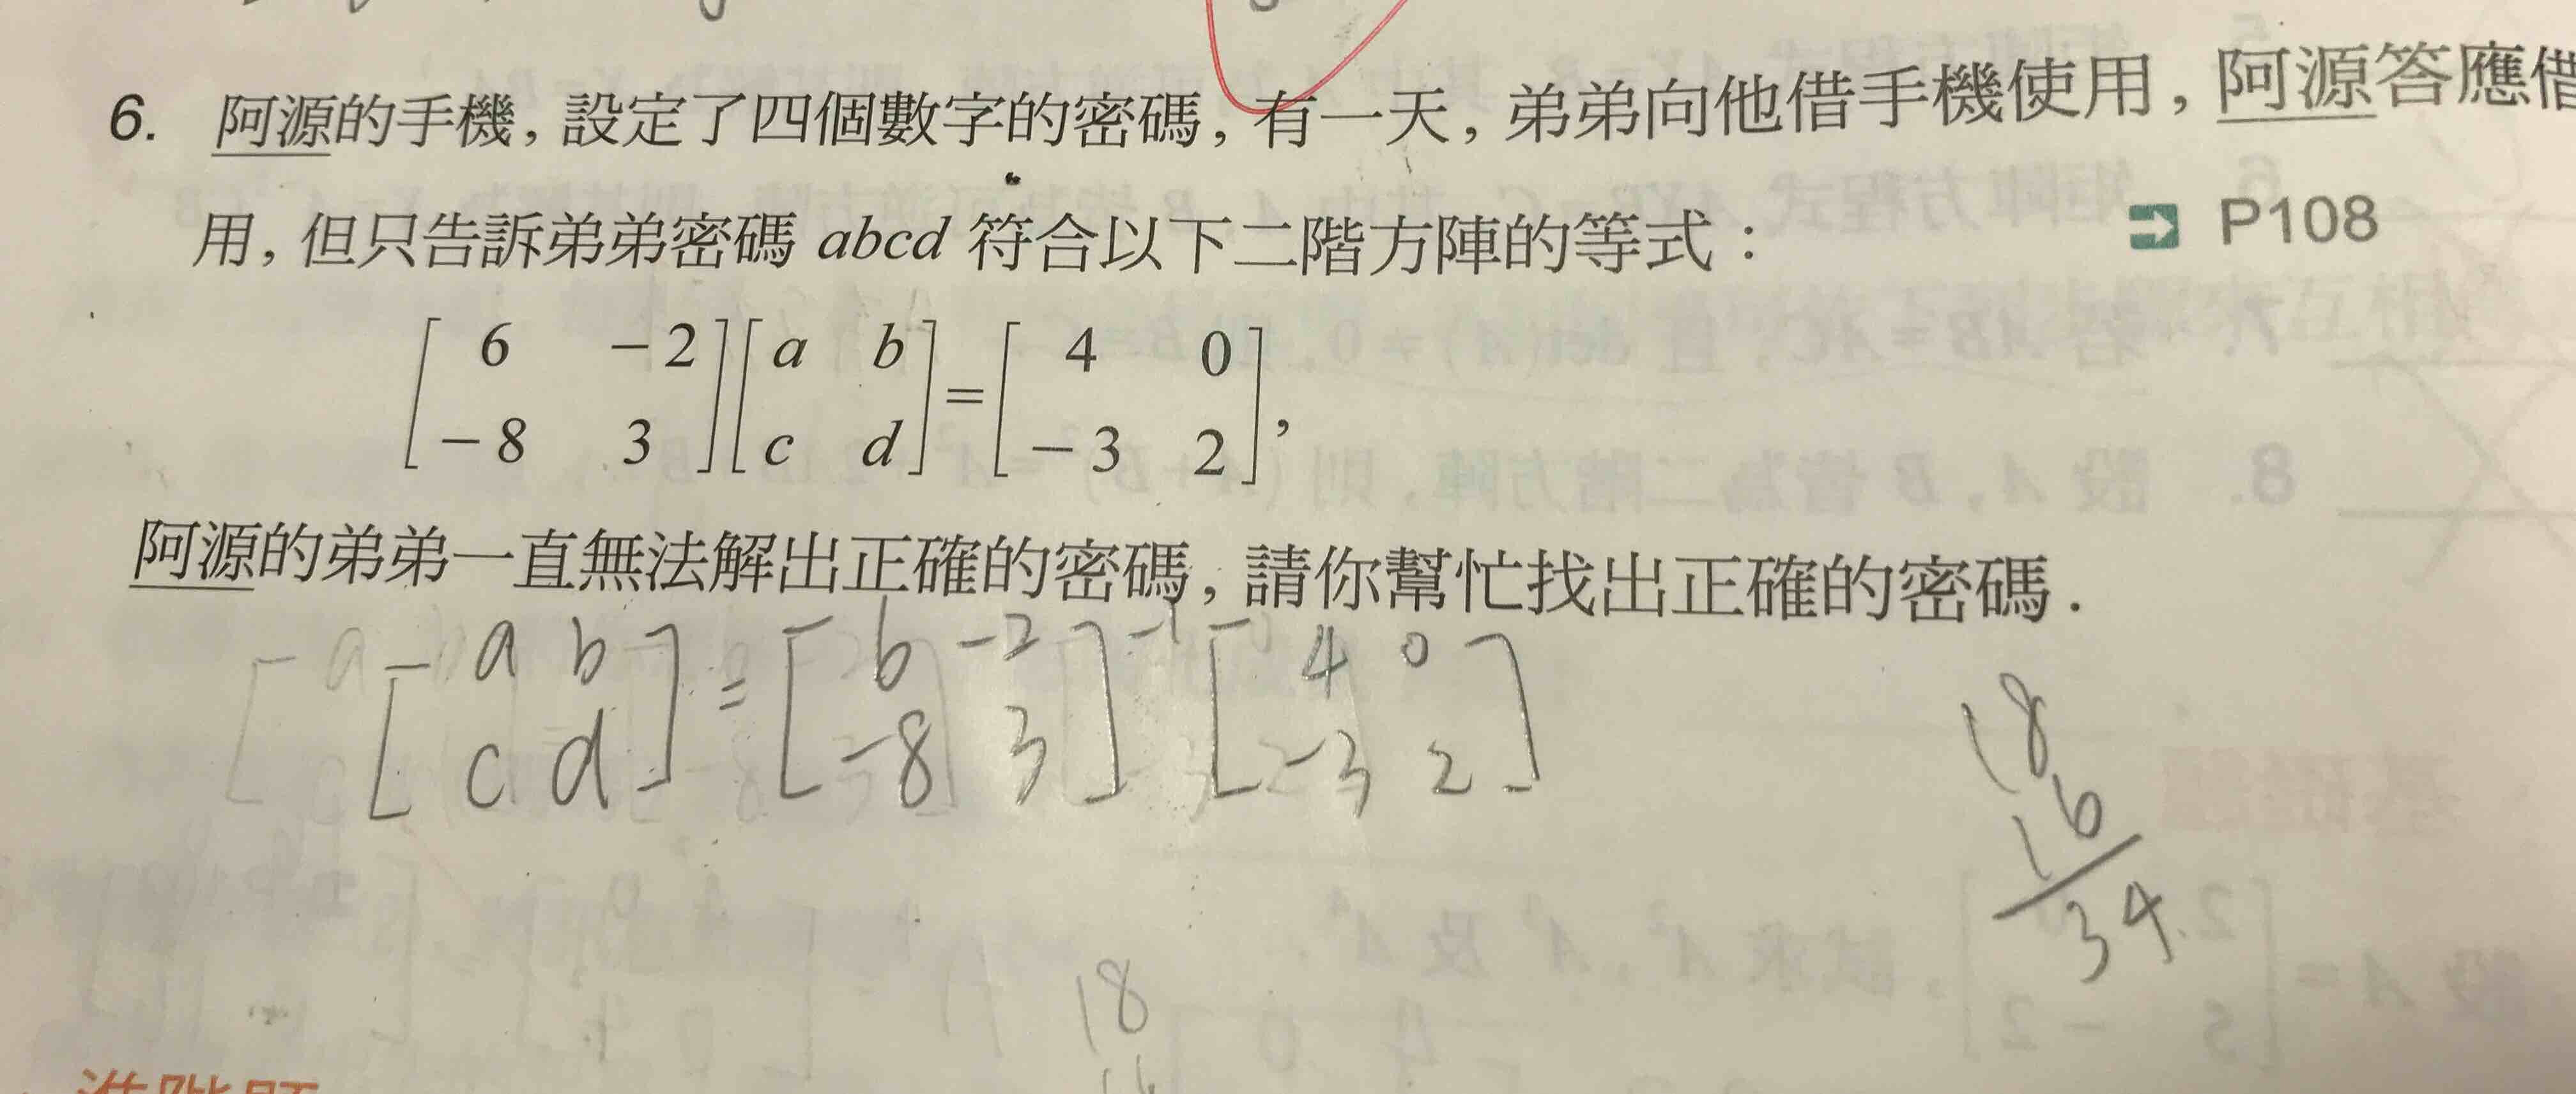 6. 阿源的手機，設定了四個數字的密碼，有一天，弟弟向他借手機使用，阿源答應借
用，但只告訴弟弟密碼 abcd 符合以下二階方陣的等式： P108
[6 -2][a b] = [4 0],
[-8 3][c d] [-3 2]
阿源的弟弟一直無法解出正確的密碼，請你幫忙找出正確的密碼．
[a b] = [6 -2]-1 [4 0]
[c d] [-8 3] [-3 2]
18
16
34
18
16
進階題